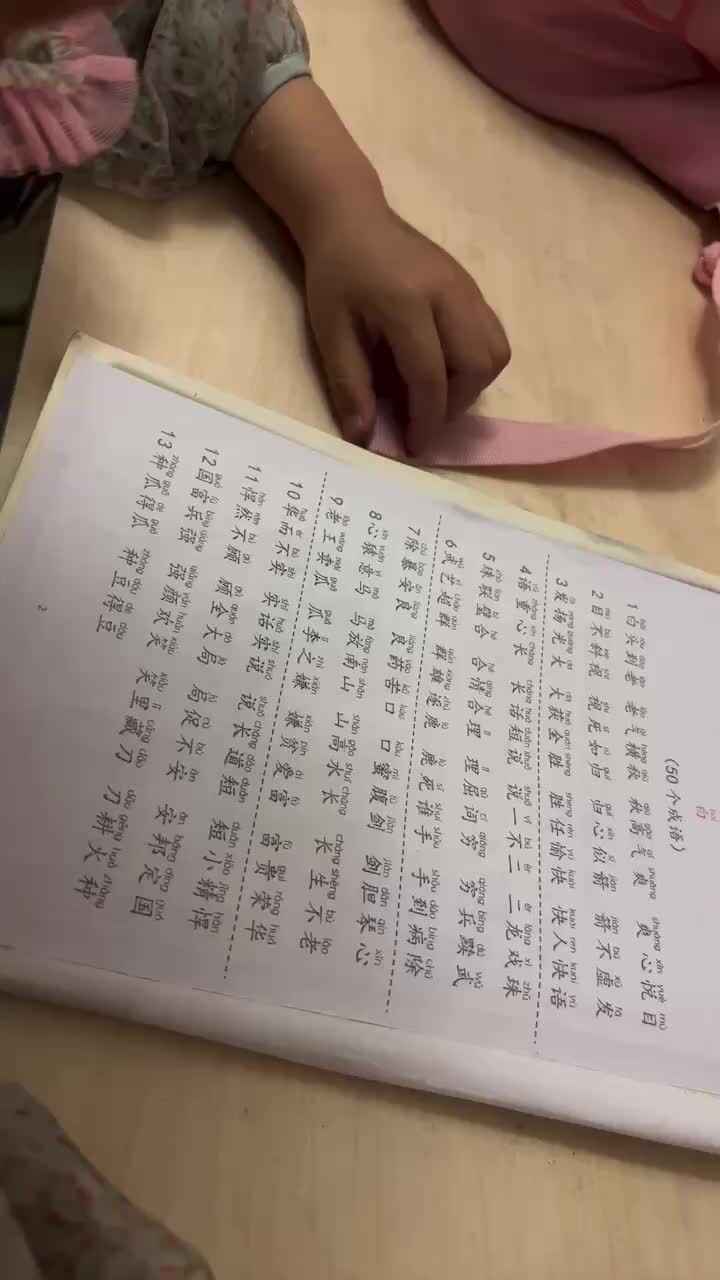 白
(50个成语)
1 白头到老 老气横秋 秋高气爽 爽心悦目
2 目不斜视 视死如归 归心似箭 箭不虚发
3 发扬光大 大获全胜 胜任愉快 快人快语
4 语重心长 长话短说 说一不二 二龙戏珠
5 珠联璧合 合情合理 理屈词穷 穷兵黩武
6 武艺超群 群雄逐鹿 鹿死谁手 手到病除
7 除暴安良 良药苦口 口蜜腹剑 剑胆琴心
8 心猿意马 马放南山 山高水长 长生不老
9 老王卖瓜 瓜李之嫌 嫌贫爱富 富贵荣华
10 华而不实 实话实说 说长道短 短小精悍
11 悍然不顾 顾全大局 局促不安 安邦定国
12 国富兵强 强颜欢笑 笑里藏刀 刀耕火种
13 种瓜得瓜 种豆得豆
2